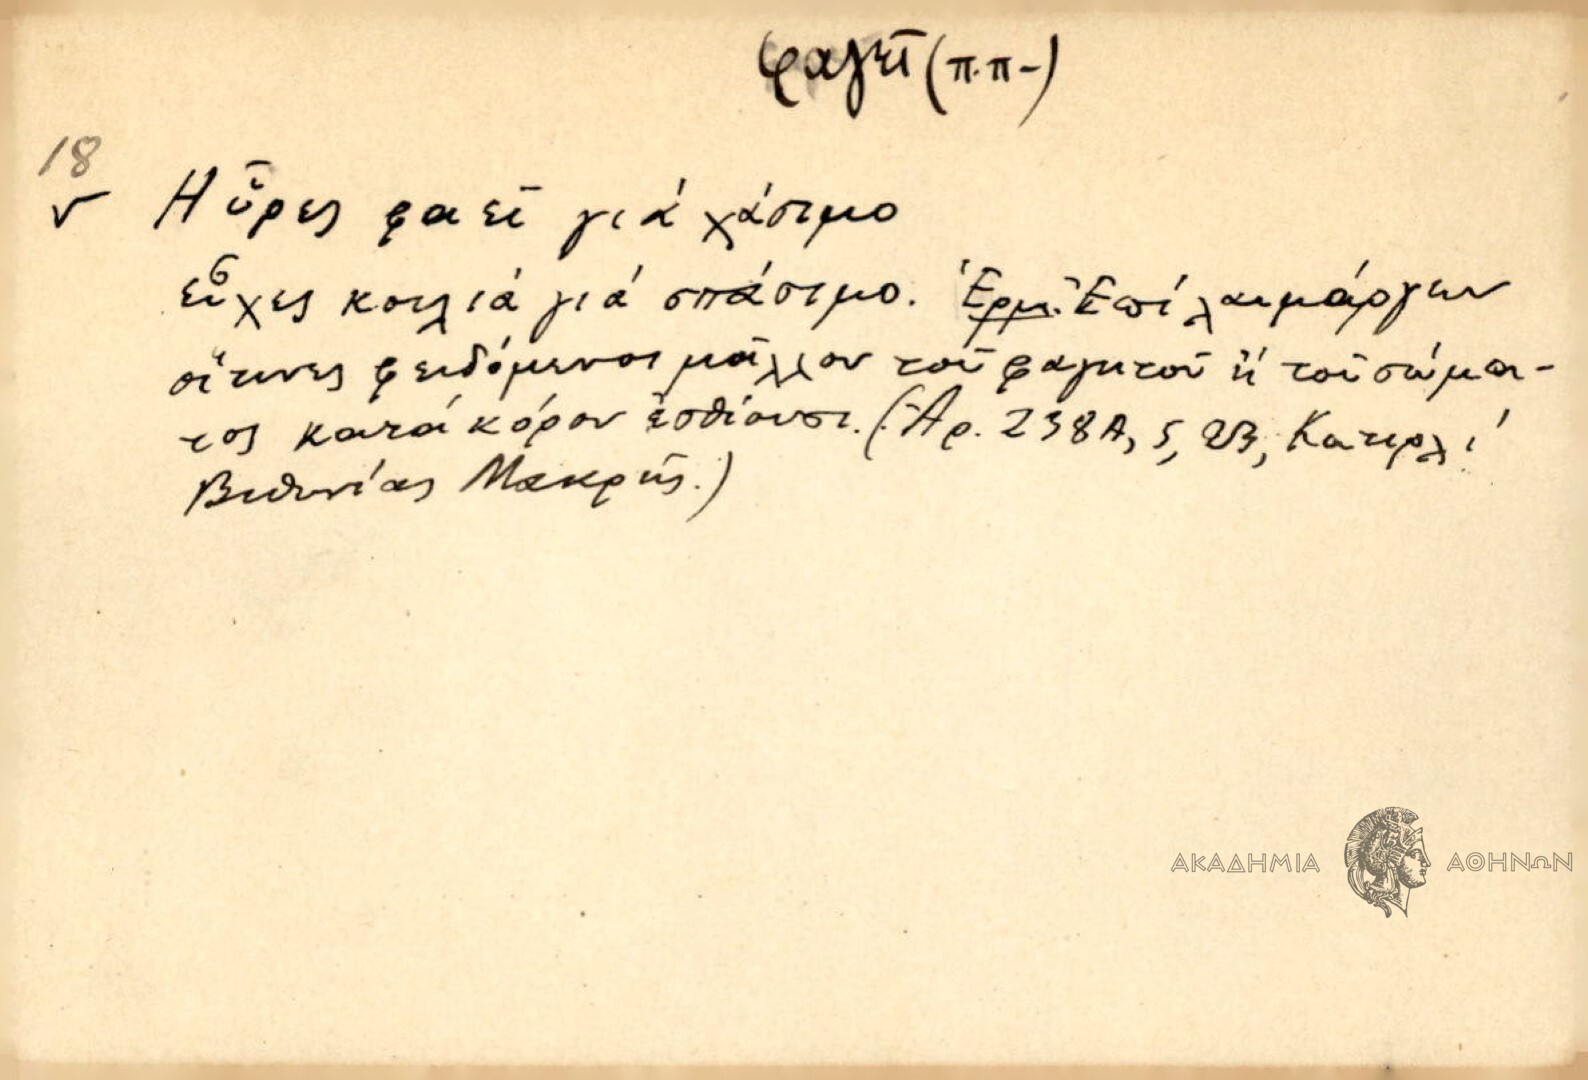 φαγεῖ (π.π-)
18
Ηὗρες φαεῖ γιά χάσιμο
εὗχες κοιλιά γιά σπάσιμο. Ἑρμ. Ἐπί λαιμάργων
οἵτινες φειδόμενοι μᾶλλον τοῦ φαγητοῦ ἤ τοῦ σώμα-
τος κατά κόρον ἐσθίουσι. (Ἀρ. 238Α, 5, 23, Κατιρλί
Βιθυνίας Μακρῆς.)
ΑΚΑΔΗΜΙΑ ΑΘΗΝΩΝ